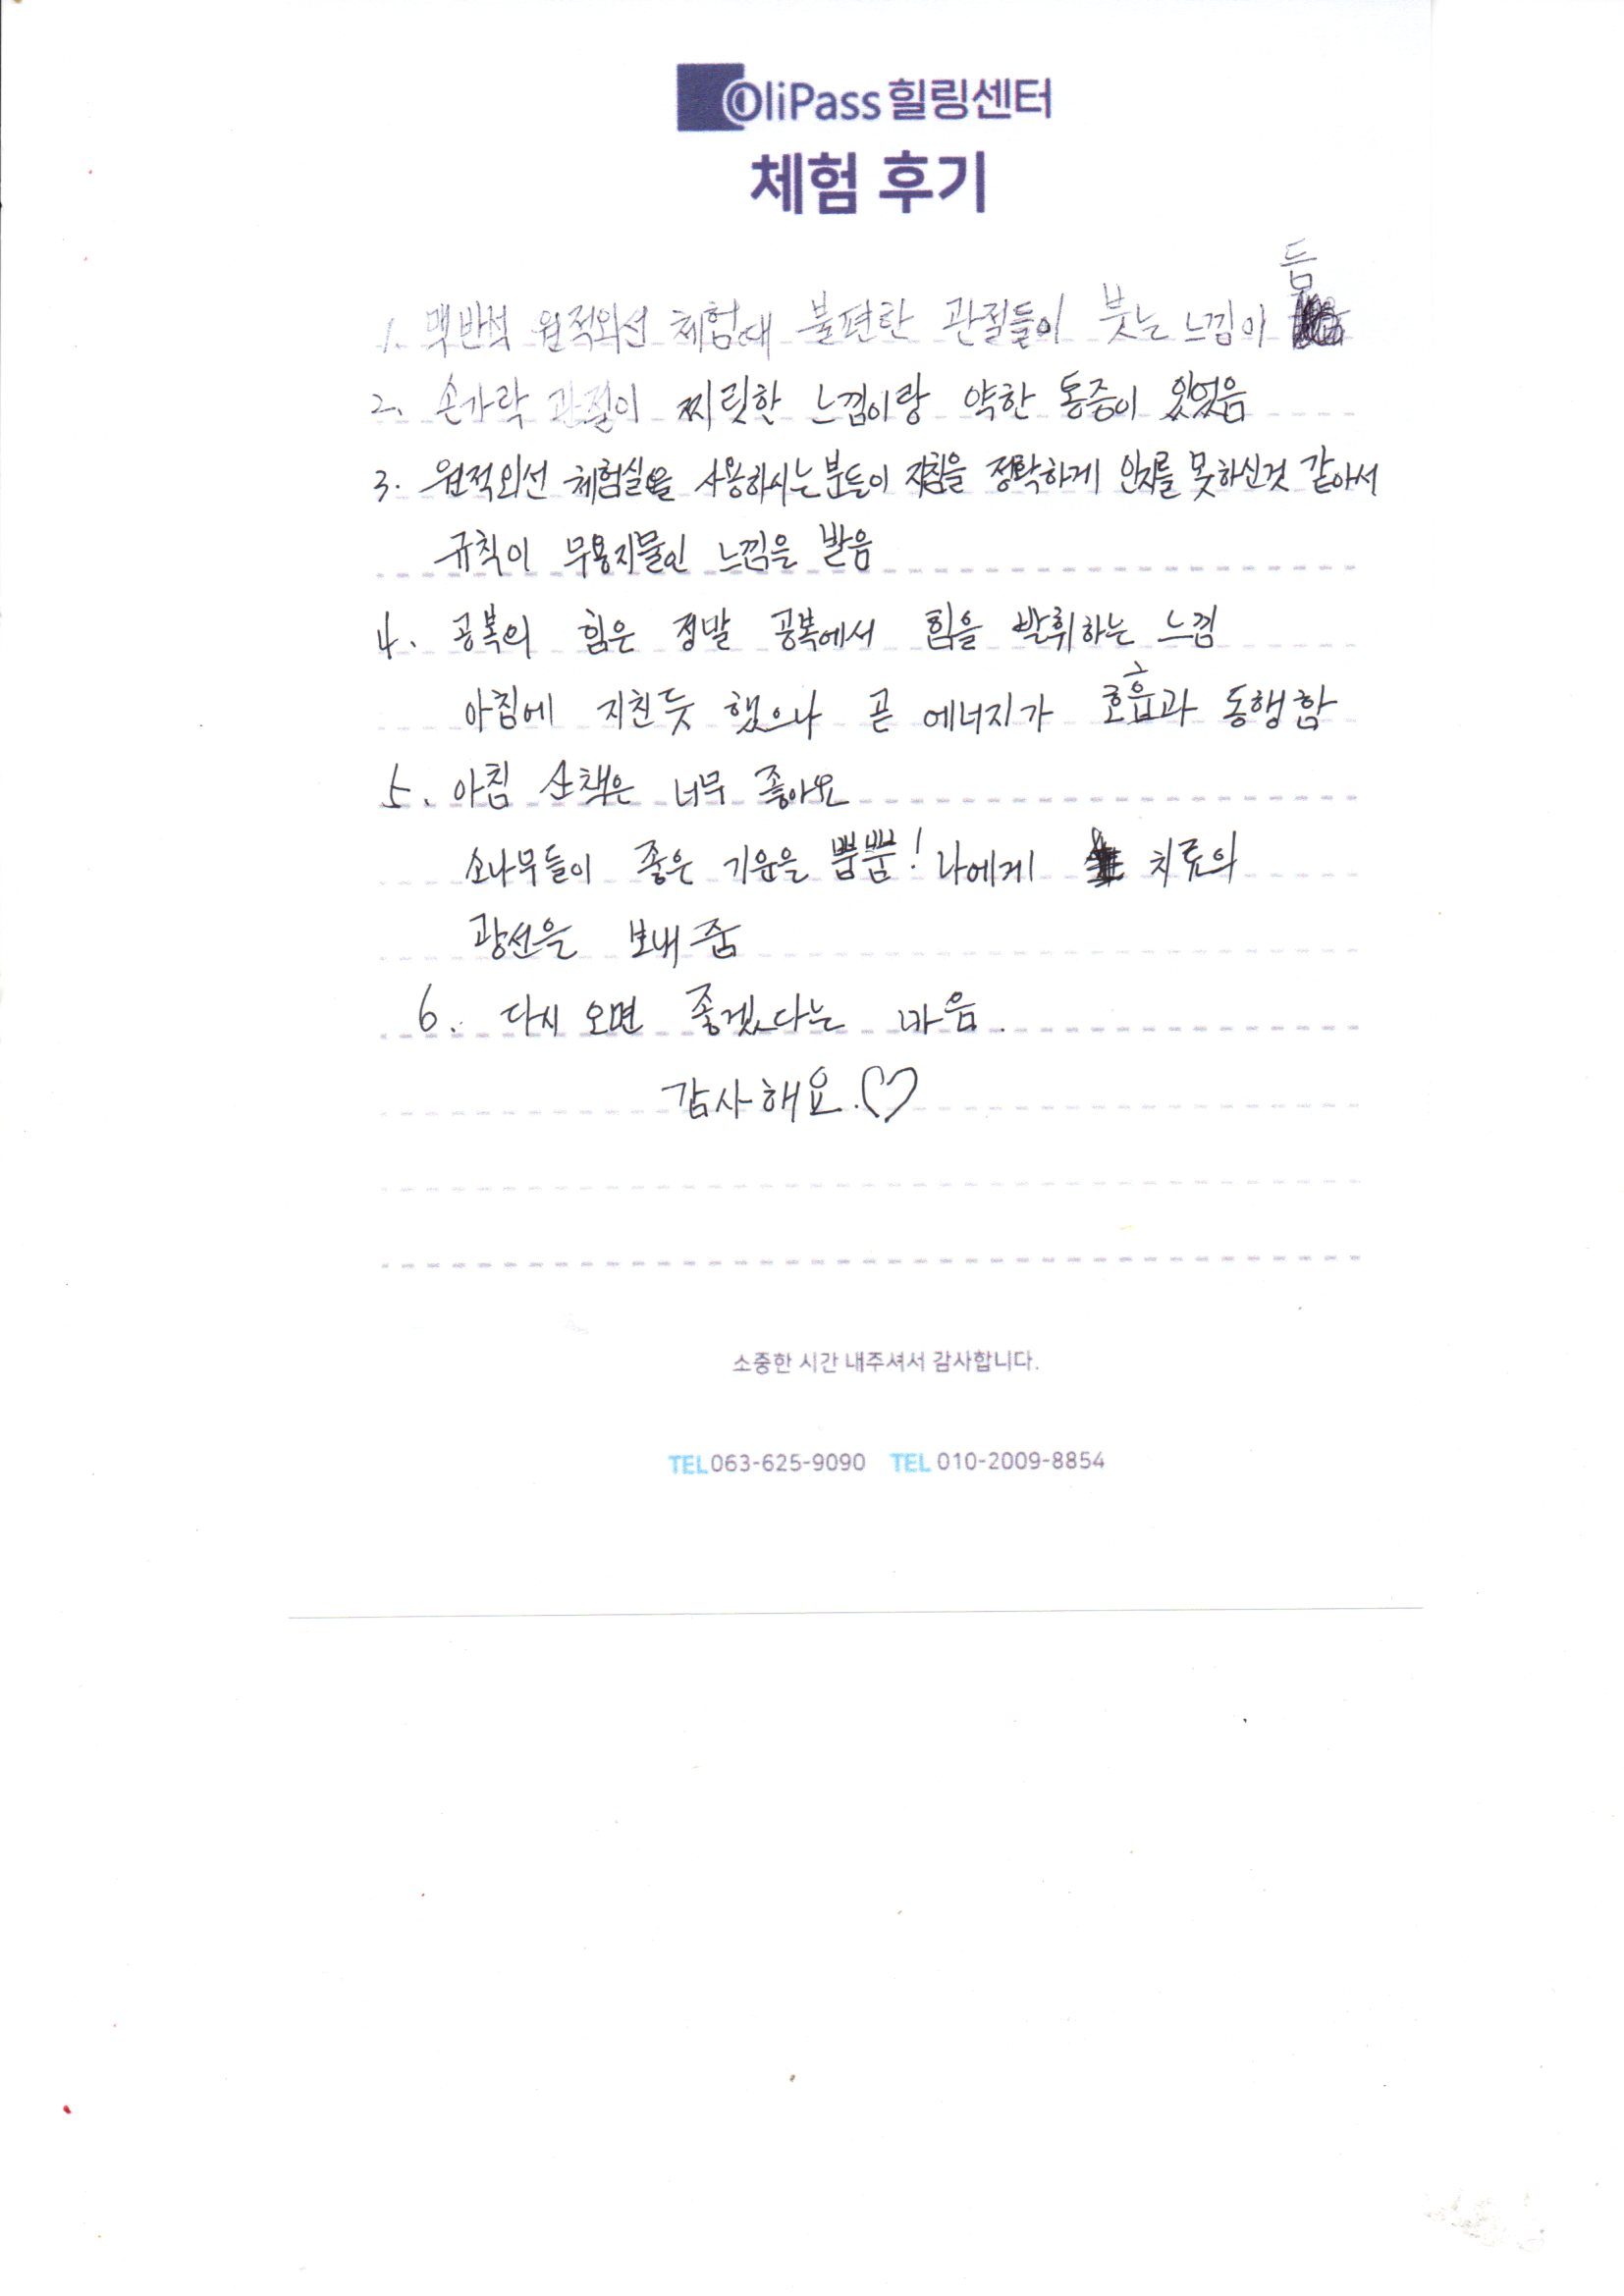 OliPass 힐링센터
체험 후기
듬
1. 맥반석 원적외선 체험때 불편한 관절들이 붓는 느낌이
2. 손가락 관절이 찌릿한 느낌이랑 약한 동증이 있었음
3. 원적외선 체험실을 사용하시는 분들이 지침을 정확하게 인지를 못하신것 같아서
규칙이 무용지물인 느낌을 받음
4. 공복의 힘은 정말 공복에서 힘을 발휘하는 느낌
아침에 지친듯 했으나 곧 에너지가 호흡과 동행함
5. 아침 산책은 너무 좋아요
소나무들이 좋은 기운을 뿜뿜! 나에게 치료의
광선을 보내줌
6. 다시 오면 좋겠다는 마음.
감사해요.♡
소중한 시간 내주셔서 감사합니다.
TEL 063-625-9090 TEL 010-2009-8854